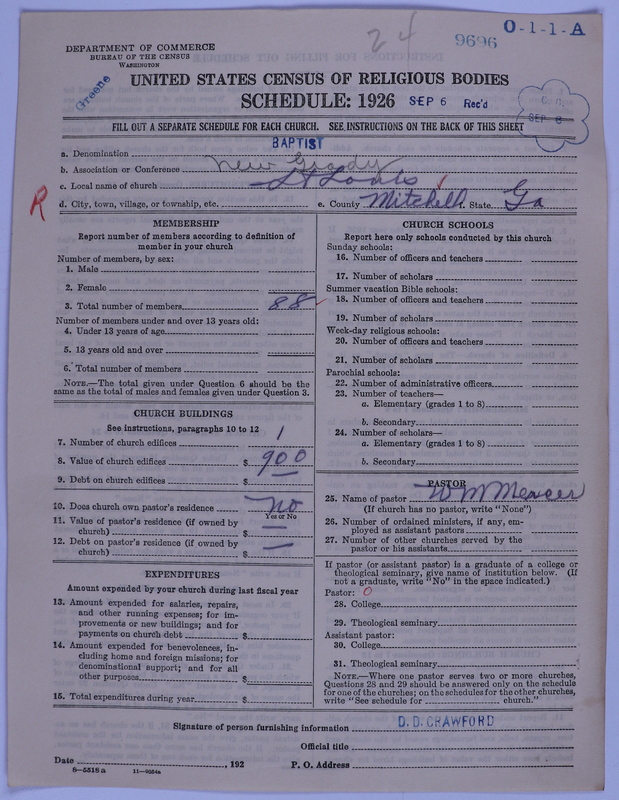 24
9696
O-1-1-A
DEPARTMENT OF COMMERCE
BUREAU OF THE CENSUS
WASHINGTON
Greene
UNITED STATES CENSUS OF RELIGIOUS BODIES
SCHEDULE: 1926 SEP 6 Rec'd
SEP 8
FILL OUT A SEPARATE SCHEDULE FOR EACH CHURCH. SEE INSTRUCTIONS ON THE BACK OF THIS SHEET
a. Denomination BAPTIST
b. Association or Conference New Grady
c. Local name of church St Louis
R d. City, town, village, or township, etc. e. County Mitchell. State. Ga
MEMBERSHIP
Report number of members according to definition of
member in your church
Number of members, by sex:
1. Male
2. Female
3. Total number of members 88
Number of members under and over 13 years old:
4. Under 13 years of age
5. 13 years old and over
6. Total number of members
NOTE.—The total given under Question 6 should be the
same as the total of males and females given under Question 3.
CHURCH BUILDINGS
See instructions, paragraphs 10 to 12
7. Number of church edifices 1
8. Value of church edifices $ 900
9. Debt on church edifices $ —
10. Does church own pastor's residence no
Yes or No
11. Value of pastor's residence (if owned by
church) $ —
12. Debt on pastor's residence (if owned by
church) $ —
EXPENDITURES
Amount expended by your church during last fiscal year
13. Amount expended for salaries, repairs,
and other running expenses; for im-
provements or new buildings; and for
payments on church debt $
14. Amount expended for benevolences, in-
cluding home and foreign missions; for
denominational support; and for all
other purposes $
15. Total expenditures during year $
CHURCH SCHOOLS
Report here only schools conducted by this church
Sunday schools:
16. Number of officers and teachers
17. Number of scholars
Summer vacation Bible schools:
18. Number of officers and teachers
19. Number of scholars
Week-day religious schools:
20. Number of officers and teachers
21. Number of scholars
Parochial schools:
22. Number of administrative officers
23. Number of teachers—
a. Elementary (grades 1 to 8)
b. Secondary
24. Number of scholars—
a. Elementary (grades 1 to 8)
b. Secondary
PASTOR
25. Name of pastor W M Mercer
(If church has no pastor, write "None")
26. Number of ordained ministers, if any, em-
ployed as assistant pastors
27. Number of other churches served by the
pastor or his assistants
If pastor (or assistant pastor) is a graduate of a college or
theological seminary, give name of institution below. (If
not a graduate, write "No" in the space indicated.)
Pastor: O
28. College
29. Theological seminary
Assistant pastor:
30. College
31. Theological seminary
NOTE.—Where one pastor serves two or more churches,
Questions 28 and 29 should be answered only on the schedule
for one of the churches; on the schedules for the other churches,
write "See schedule for church."
Signature of person furnishing information D. D. CRAWFORD
Official title
Date , 192 P. O. Address
8—5518 a 11—9554a